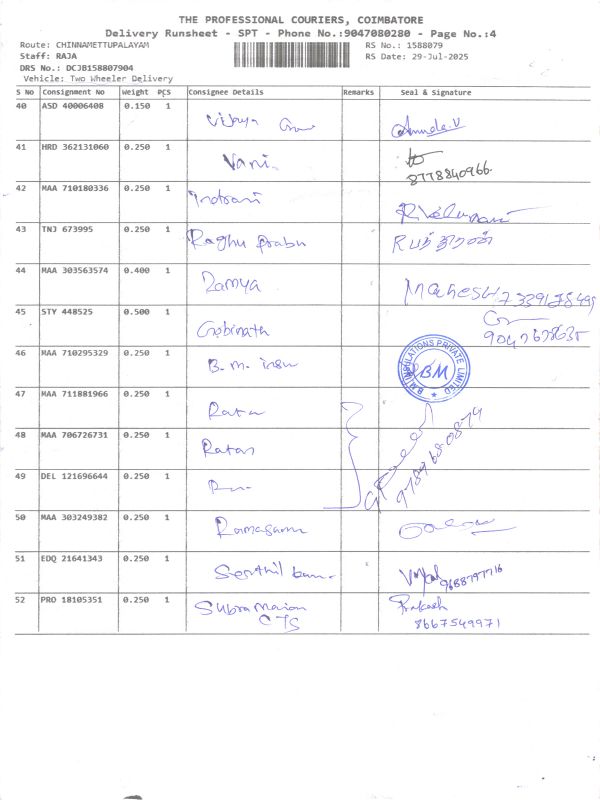 THE PROFESSIONAL COURIERS, COIMBATORE
Delivery Runsheet - SPT - Phone No.:9047080280 - Page No.:4
Route: CHINNAMETTUPALAYAM RS No.: 1588079
Staff: RAJA RS Date: 29-Jul-2025
DRS No.: DCJB158807904
Vehicle: Two Wheeler Delivery
S No Consignment No Weight PCS Consignee Details Remarks Seal & Signature
40 ASD 40006408 0.150 1 Vijaya
41 HRD 362131060 0.250 1 Vani
8778840966
42 MAA 710180336 0.250 1 Indrani
43 TNJ 673995 0.250 1 Raghu Prabu
44 MAA 303563574 0.400 1 Ramya Mahesh
45 STY 448525 0.500 1 Gobinath
46 MAA 710295329 0.250 1 B.m. insu B.M. INSULATIONS PRIVATE LIMITED BM
47 MAA 711881966 0.250 1
48 MAA 706726731 0.250 1 Ratan
49 DEL 121696644 0.250 1
50 MAA 303249382 0.250 1 Ramasamy
51 EDQ 21641343 0.250 1 Senthil kum
9688797716
52 PRO 18105351 0.250 1 Subramanian Prakash
CTS 8667549971